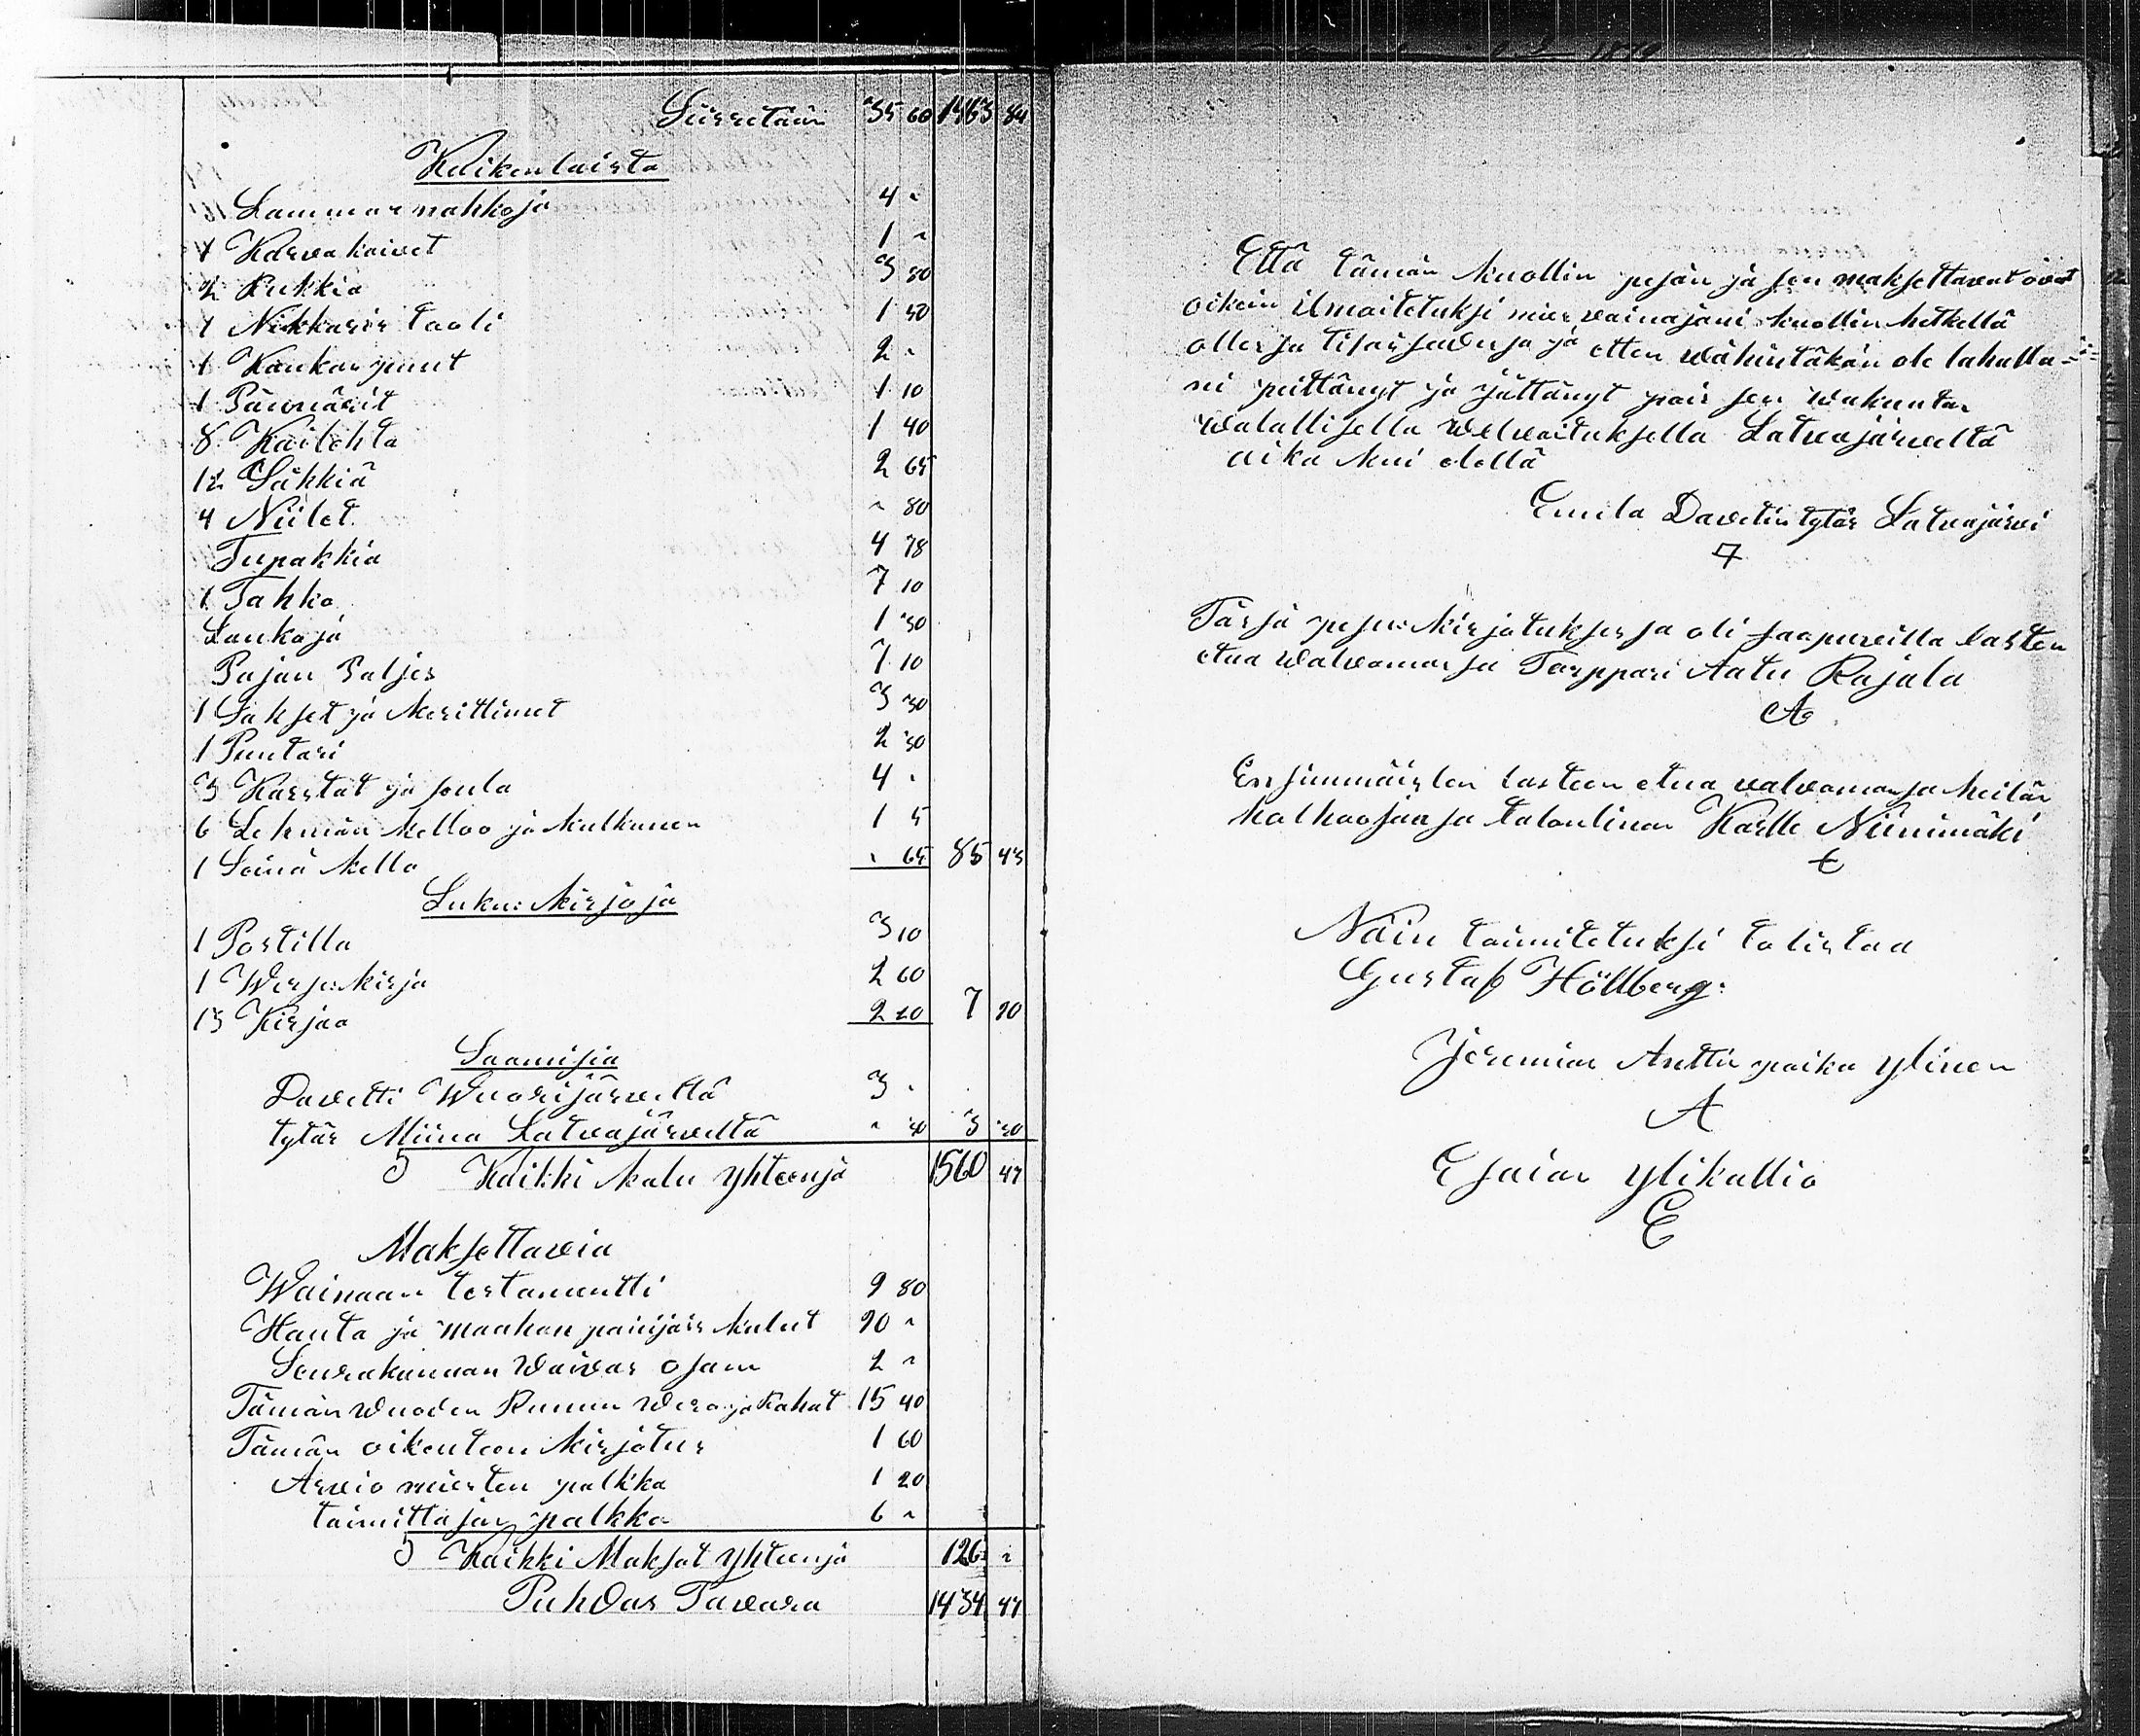 Siirretään 35 60 1463 84
Kaikenlaista
Lammas nahkoja 4 "
1 Karvakaiset 1 "
2 Rukkia 3 80
1 Nikkaris tooli 1 50
1 Kankaspuut 2 "
1 Päännärit 1 10
8 Kaitehta 1 40
12 Säkkiä 2 65
4 Niilet " 80
Tupakkia 4 78
1 Tahko 7 10
Lankoja 1 30
Pajan Paljes 7 10
1 Sakset ja kerittimet 3 30
1 Puntari 2 30
3 Karstat ja soula 4 "
6 Lehmän kelloo ja kulkunen 1 5
1 Seinä kello " 65 85 43
Luku: kirjoja
1 Postilla 3 10
1 Wirsi: kirja 2 60
13 Kirjaa 2 20 7 90
Saamisia
Davetti Wuorijärveltä 3 "
tytär Miina Latvajärveltä " 30 3 30
S Kaikki kalu yhteensä 1560 47
Maksettavia
Wainaan testamentti 9 80
Hauta ja maahan panijais kulut 90 "
Seurakunnan Waivas osan 2 "
Tämän wuoden Ruunun Wero ja Rahat 15 40
Tämän oikeuteen kirjotus 1 60
Arvio miesten palkka 1 20
toimittajan palkka 6 "
S Kaikki Maksot yhteensä 126 "
Puhdas Tavara 1434 47
Että tämän kuollin pesän ja sen maksettavat ovat
oikein ilmoitetuksi mies vainajani kuollin hetkellä
ollessa tilaisuudessa ja etten wähintäkän ole tahalla=
ni peittänyt ja jättänyt pois sen wakuutan
walallisella welvoituksella Latvajärveltä
aika kui edellä
Emila Davetin tytär Latvajärvi
Tässä pesä: kirjotuksessa oli saapuvilla lasten
etua walvomassa Torppari Aatu Rajala
A
Ensimmäisten lasteen etua valvomassa heitän
holhoojansa talonlinen Kalle Niinimäki
Näin toimitetuksi todistaa
Gustaf Hällberg:
Jeremias Anttin poika Ylinen
A
Esaias Ylikallio
E